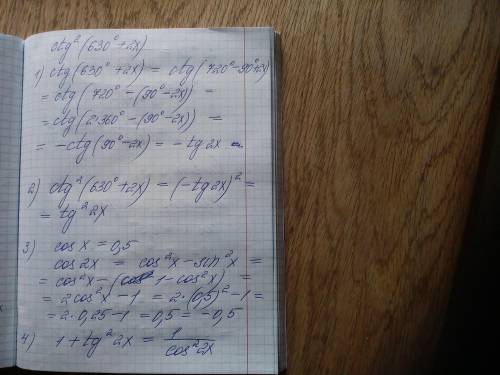 ctg²(630°+2x)
1) ctg(630°+2x) = ctg(720°-90°+2x)
= ctg(720°-(90°-2x)) =
= ctg(2·360°-(90°-2x)) =
= -ctg(90°-2x) = -tg2x
2) ctg²(630°+2x) = (-tg2x)² =
= tg²2x
3) cosx = 0,5
cos2x = cos²x-sin²x =
= cos²x-(1-cos²x) =
= 2cos²x-1 = 2·(0,5)²-1 =
= 2·0,25-1 = 0,5 = -0,5
4) 1+tg²2x = 1/cos²2x